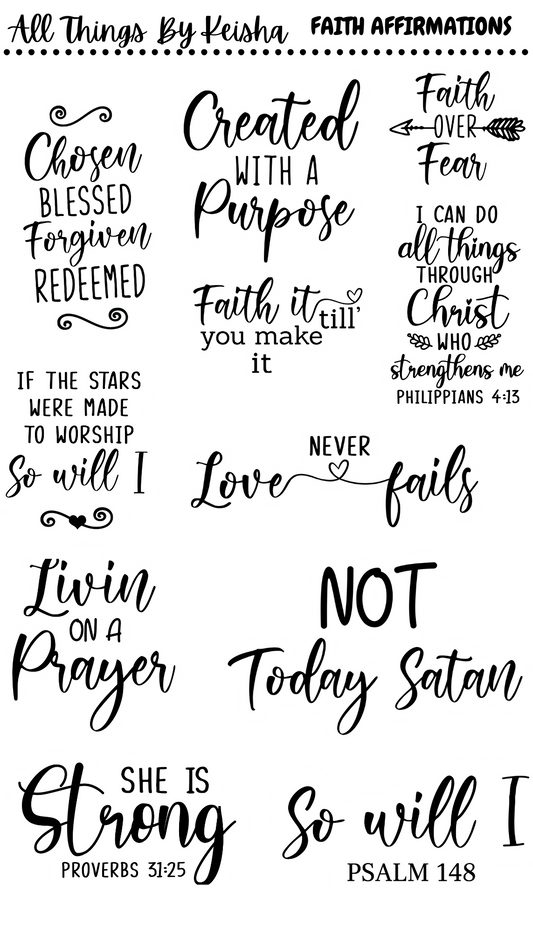 All Things By Keisha FAITH AFFIRMATIONS
Chosen
BLESSED
Forgiven
REDEEMED
Created
WITH A
Purpose
Faith
OVER
Fear
I CAN DO
all things
THROUGH
Christ
WHO
strengthens me
PHILIPPIANS 4:13
Faith it till'
you make
it
IF THE STARS
WERE MADE
TO WORSHIP
So will I
NEVER
Love fails
Livin
ON A
Prayer
NOT
Today Satan
SHE IS
Strong
PROVERBS 31:25
So will I
PSALM 148